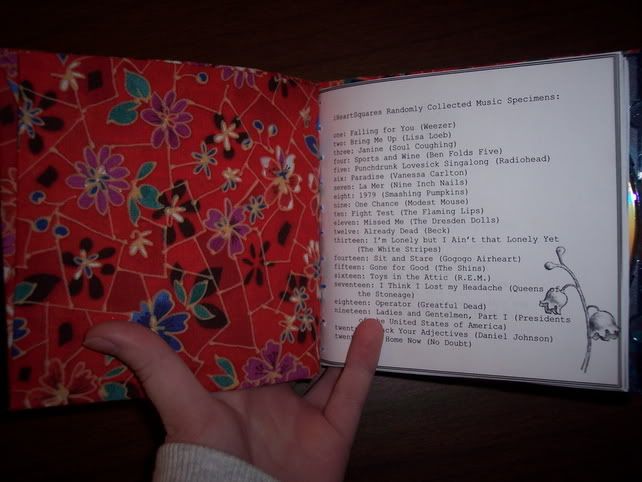 iHeartSquares Randomly Collected Music Specimens:
one: Falling for You (Weezer)
two: Bring Me Up (Lisa Loeb)
three: Janine (Soul Coughing)
four: Sports and Wine (Ben Folds Five)
five: Punchdrunk Lovesick Singalong (Radiohead)
six: Paradise (Vanessa Carlton)
seven: La Mer (Nine Inch Nails)
eight: 1979 (Smashing Pumpkins)
nine: One Chance (Modest Mouse)
ten: Fight Test (The Flaming Lips)
eleven: Missed Me (The Dresden Dolls)
twelve: Already Dead (Beck)
thirteen: I'm Lonely but I Ain't that Lonely Yet
(The White Stripes)
fourteen: Sit and Stare (Gogogo Airheart)
fifteen: Gone for Good (The Shins)
sixteen: Toys in the Attic (R.E.M.)
seventeen: I Think I Lost my Headache (Queens
the Stoneage)
eighteen: Operator (Greatful Dead)
nineteen: Ladies and Gentelmen, Part I (Presidents
the United States of America)
Your Adjectives (Daniel Johnson)
Home Now (No Doubt)